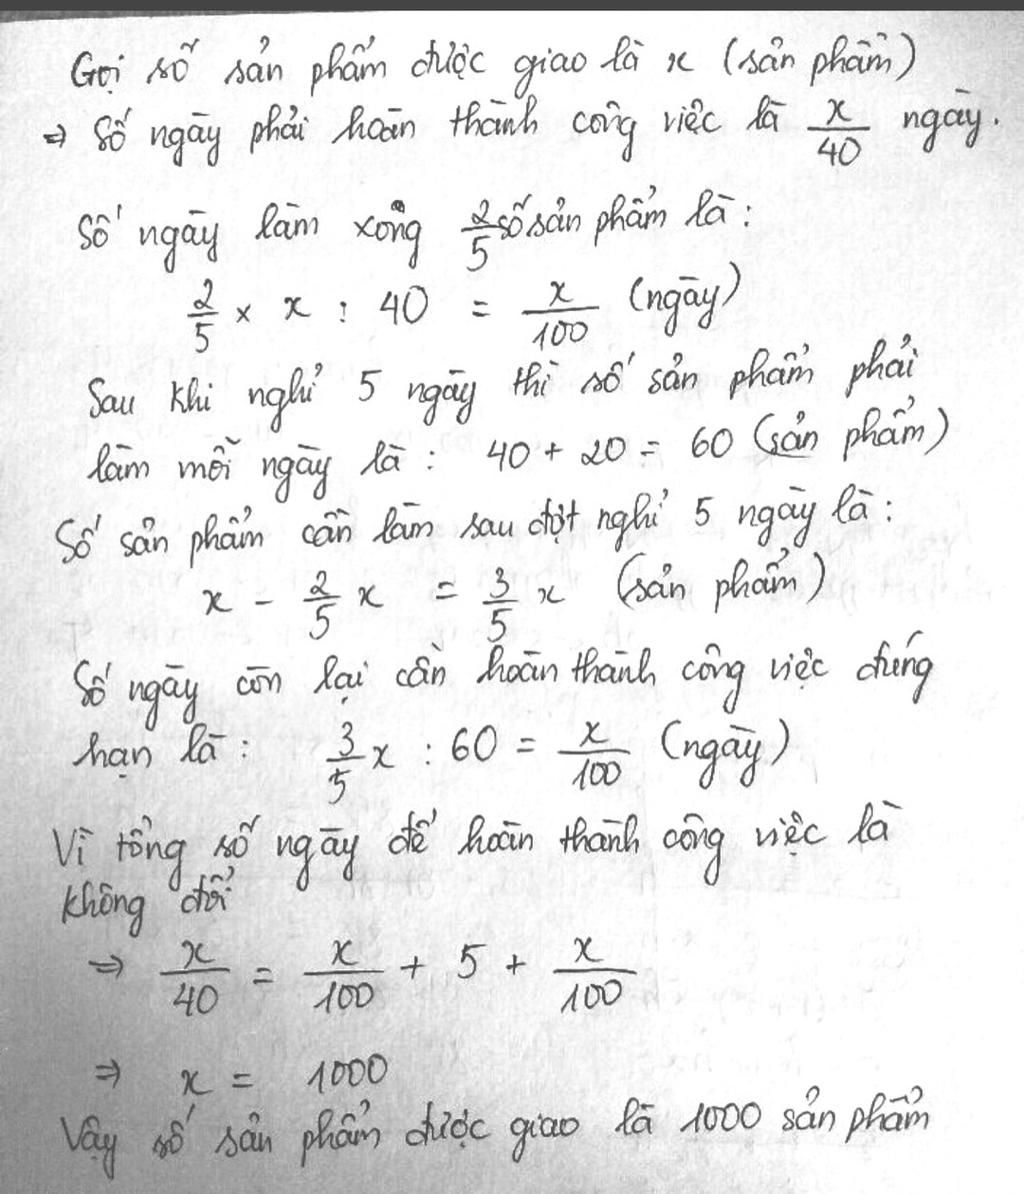 Gọi số sản phẩm được giao là x (sản phẩm)
⇒ Số ngày phải hoàn thành công việc là x/40 ngày.
Số ngày làm xong 2/5 số sản phẩm là:
2/5 × x : 40 = x/100 (ngày)
Sau khi nghỉ 5 ngày thì số sản phẩm phải
làm mỗi ngày là : 40 + 20 = 60 (sản phẩm)
Số sản phẩm cần làm sau đợt nghỉ 5 ngày là :
x - 2/5 x = 3/5 x (sản phẩm)
Số ngày còn lại cần hoàn thành công việc đúng
hạn là : 3/5 x : 60 = x/100 (ngày)
Vì tổng số ngày để hoàn thành công việc là
không đổi
⇒ x/40 = x/100 + 5 + x/100
⇒ x = 1000
Vậy số sản phẩm được giao là 1000 sản phẩm